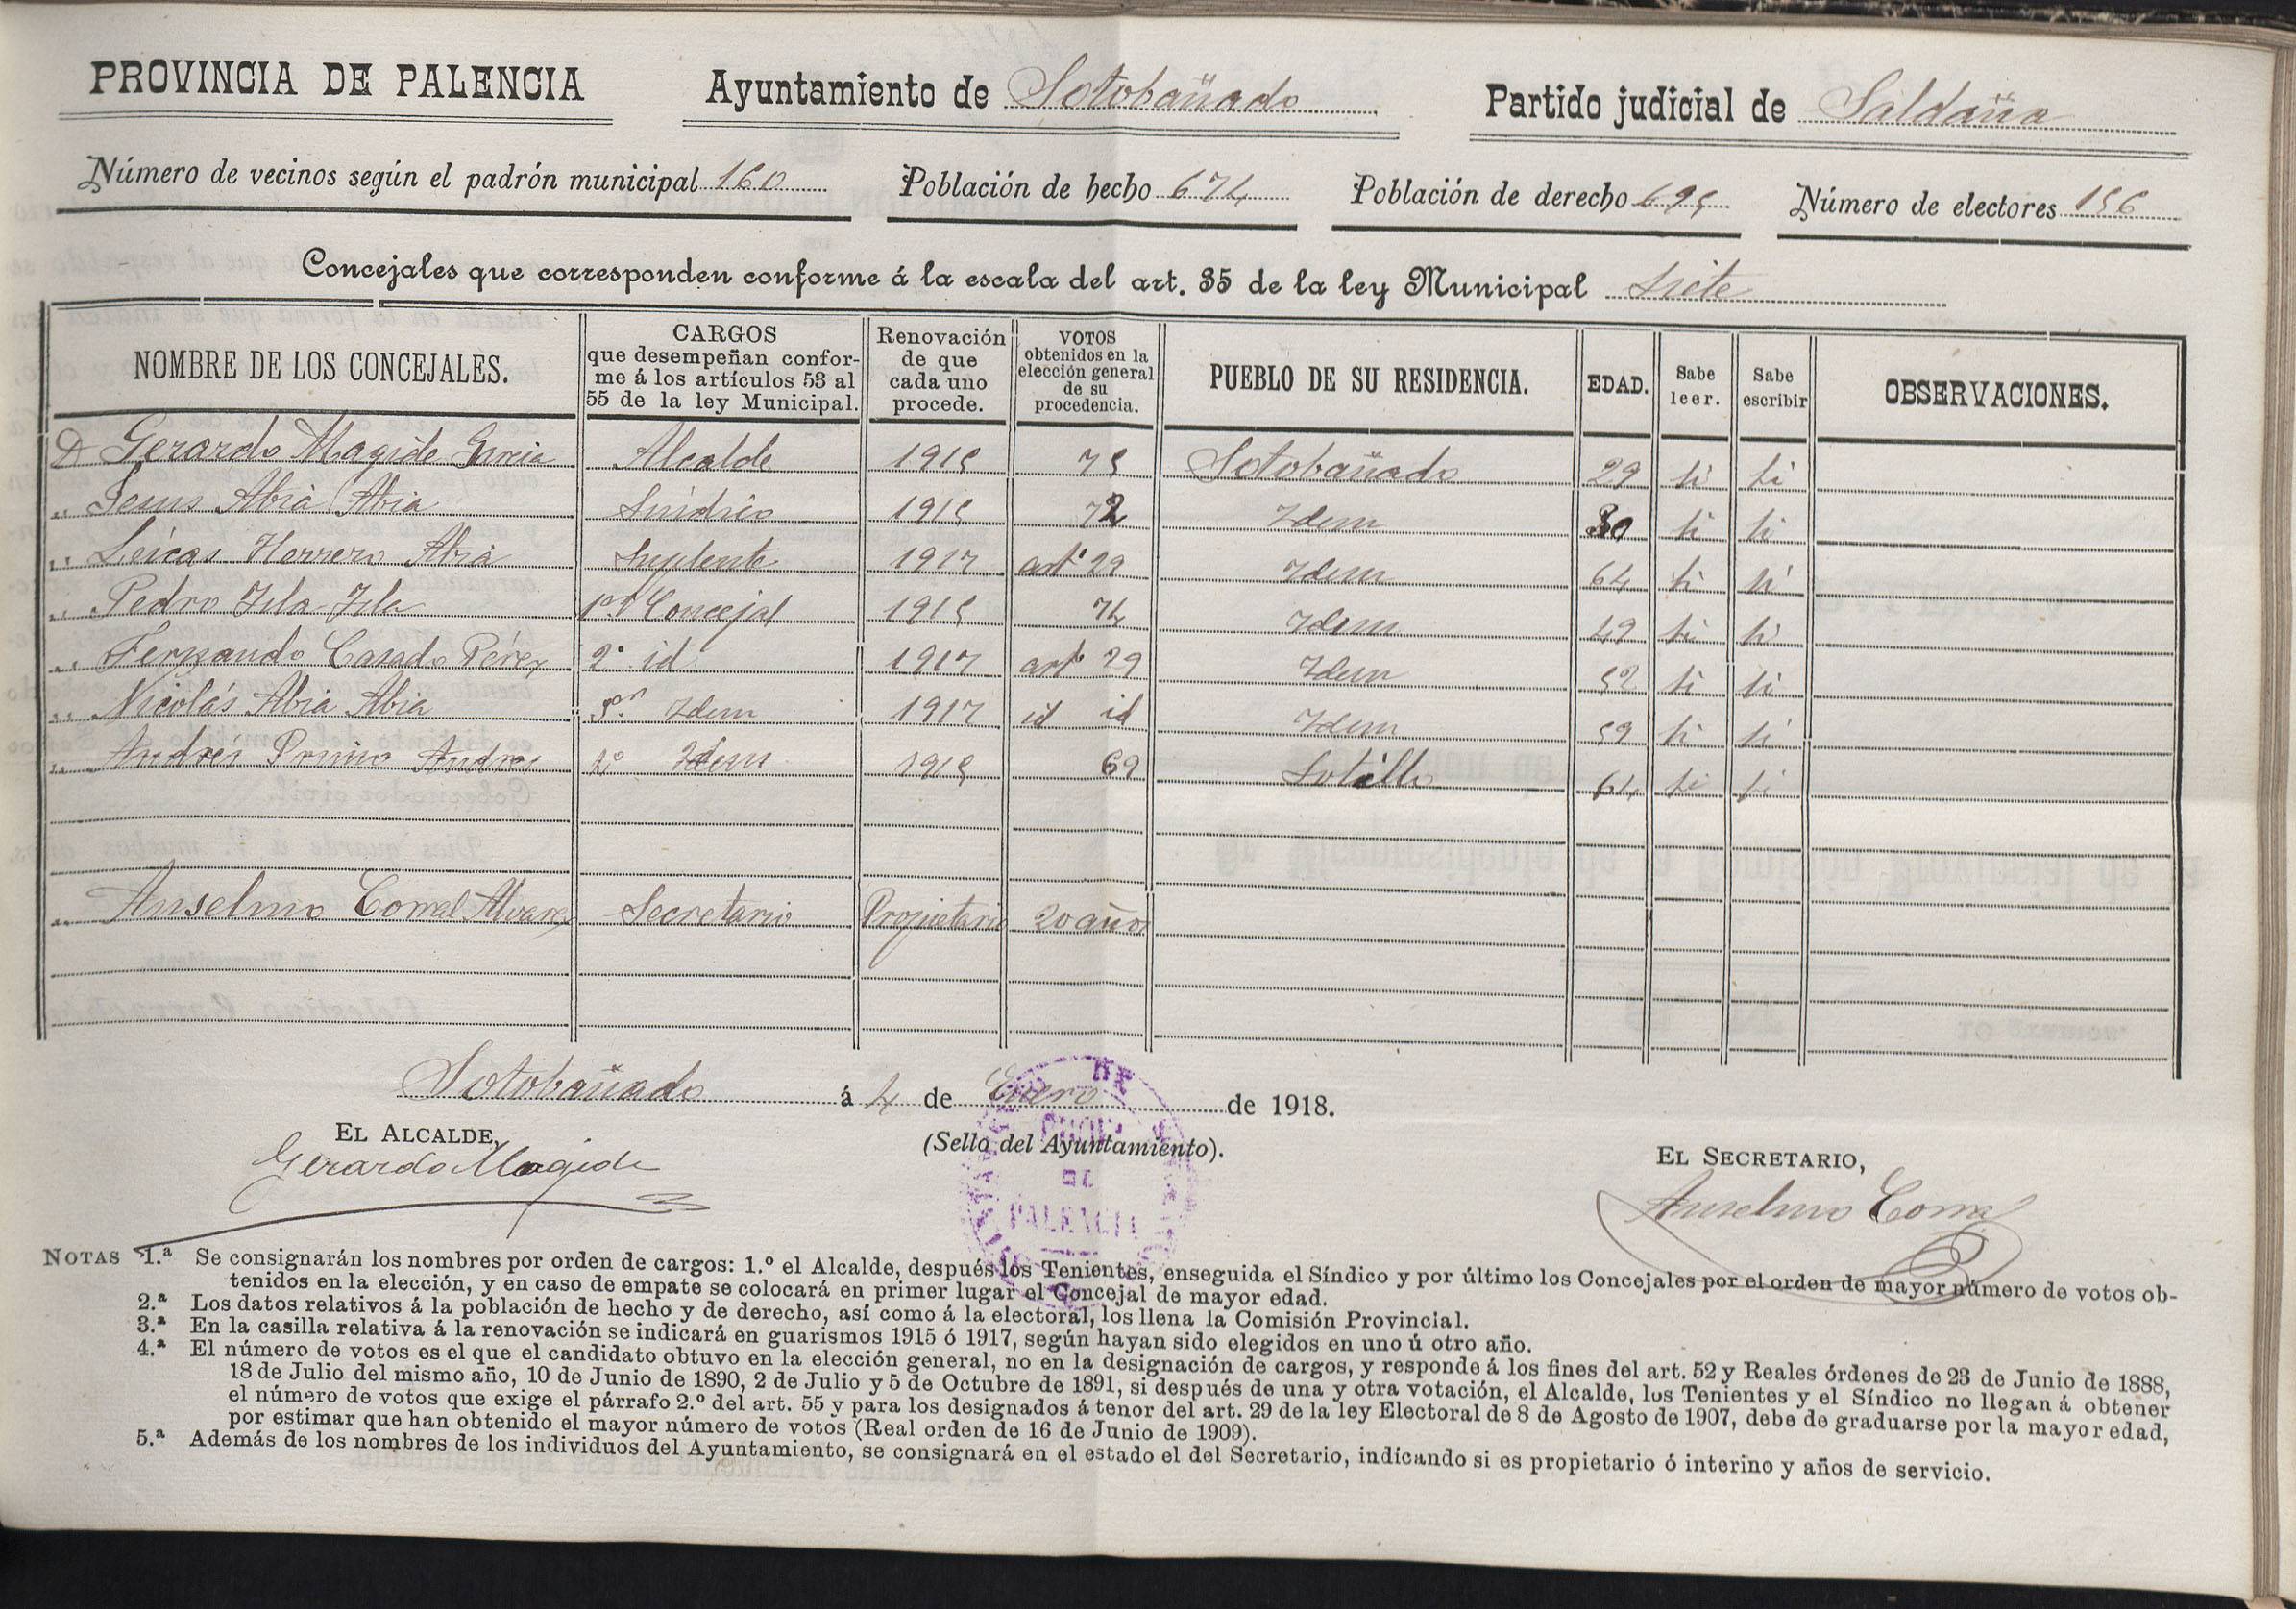 PROVINCIA DE PALENCIA Ayuntamiento de Sotobañado Partido judicial de Saldaña
Número de vecinos según el padrón municipal 160 Población de hecho 674 Población de derecho 695 Número de electores 156
Concejales que corresponden conforme á la escala del art. 35 de la ley Municipal siete
NOMBRE DE LOS CONCEJALES. CARGOS que desempeñan conforme á los artículos 53 al 55 de la ley Municipal. Renovación de que cada uno procede. VOTOS obtenidos en la elección general de su procedencia. PUEBLO DE SU RESIDENCIA. EDAD. Sabe leer. Sabe escribir OBSERVACIONES.
D Gerardo Magide Alcalde 1915 75 Sotobañado 29 si si
„ Jesus Abia Abia Sindico 1915 72 Idem 30 si si
„ Leicas Herrero Abia Suplente 1917 artº 29 Idem 64 si si
„ Pedro Isla Isla 1er Concejal 1915 74 Idem 49 si si
„ Fernando Casado Pérez 2º id 1917 artº 29 Idem 52 si si
„ Nicolás Abia Abia 3er Idem 1917 id id Idem 59 si si
„ Andrés Andres 4º Idem 1915 69 Sotillo 64 si si
„ Anselmo Corral Alvarez Secretario Propietario 20 años
Sotobañado á 4 de Enero de 1918.
EL ALCALDE,
(Sello del Ayuntamiento).
EL SECRETARIO,
Gerardo Magide
Anselmo Corral
DE
PROV.ª
DE
PALENCIA
NOTAS 1.ª Se consignarán los nombres por orden de cargos: 1.º el Alcalde, después los Tenientes, enseguida el Síndico y por último los Concejales por el orden de mayor número de votos ob-
tenidos en la elección, y en caso de empate se colocará en primer lugar el Concejal de mayor edad.
2.ª Los datos relativos á la población de hecho y de derecho, así como á la electoral, los llena la Comisión Provincial.
3.ª En la casilla relativa á la renovación se indicará en guarismos 1915 ó 1917, según hayan sido elegidos en uno ú otro año.
4.ª El número de votos es el que el candidato obtuvo en la elección general, no en la designación de cargos, y responde á los fines del art. 52 y Reales órdenes de 23 de Junio de 1888,
18 de Julio del mismo año, 10 de Junio de 1890, 2 de Julio y 5 de Octubre de 1891, si después de una y otra votación, el Alcalde, los Tenientes y el Síndico no llegan á obtener
el número de votos que exige el párrafo 2.º del art. 55 y para los designados á tenor del art. 29 de la ley Electoral de 8 de Agosto de 1907, debe de graduarse por la mayor edad,
por estimar que han obtenido el mayor número de votos (Real orden de 16 de Junio de 1909).
5.ª Además de los nombres de los individuos del Ayuntamiento, se consignará en el estado el del Secretario, indicando si es propietario ó interino y años de servicio.